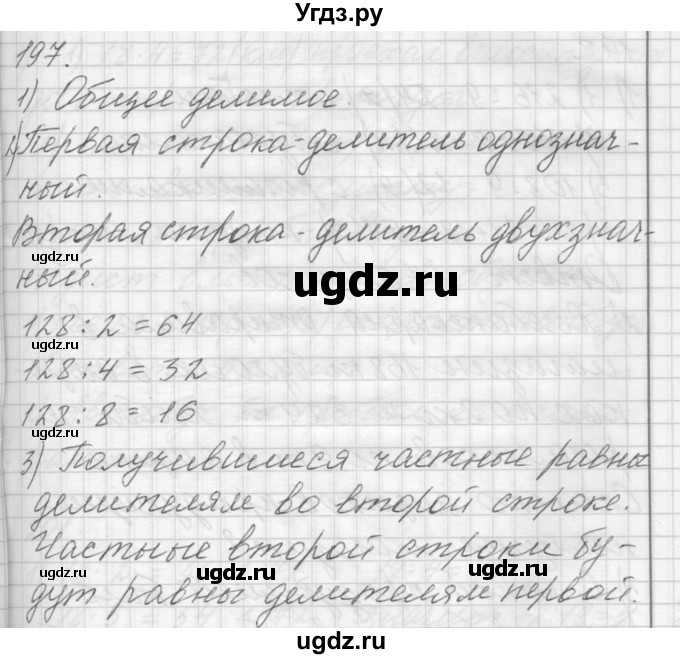 Угдз.ру
197.
1) Общее делимое.
2) Первая строка - делитель однознач-
ный.
Вторая строка - делитель двухзнач-
ный.
ugdz.ru
ugdz.ru
128 : 2 = 64
ugdz.ru
128 : 4 = 32
128 : 8 = 16
ugdz.ru
3) Получившиеся частные равны
делителям во второй строке.
Частные второй строки бу-
ugdz.ru
ugdz.ru
дут равны делителям первой.
ugdz.ru